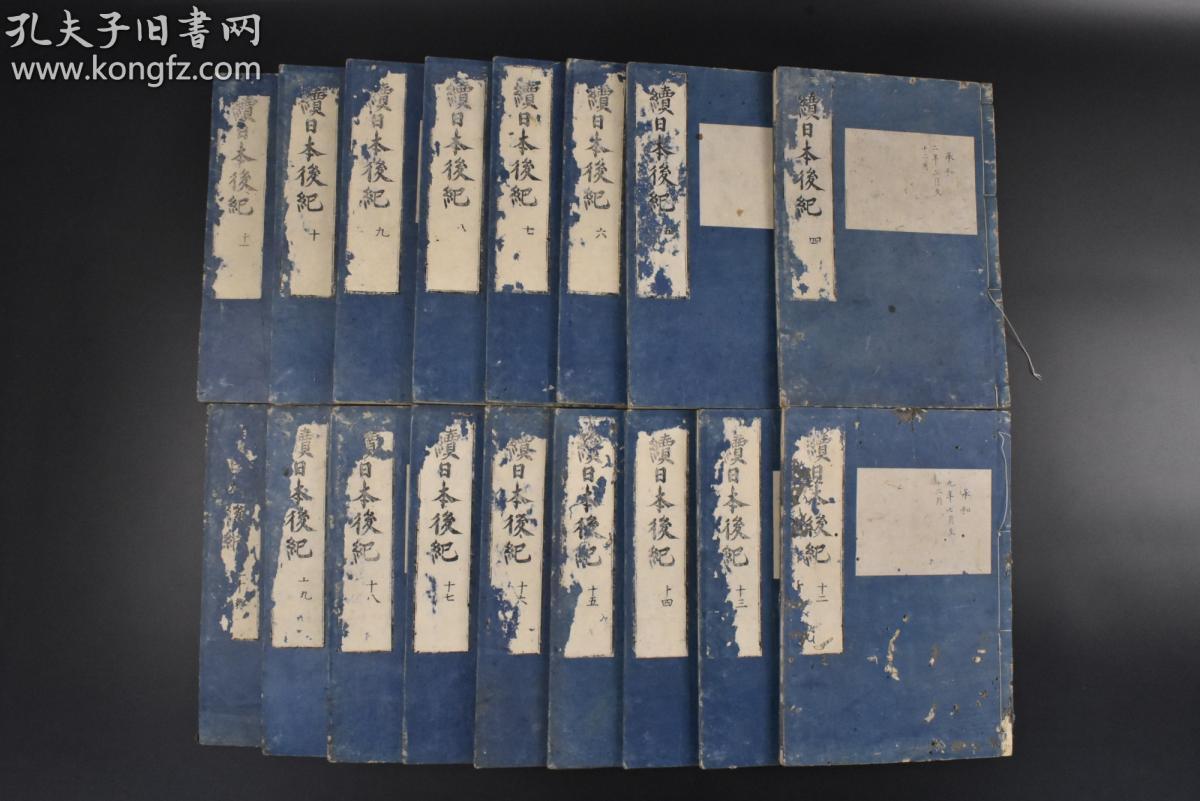 孔夫子旧书网
www.kongfz.com
續日本後紀 四
承和
二年正月至
十二月
續日本後紀 五
續日本後紀 六
續日本後紀 七
續日本後紀 八
續日本後紀 九
續日本後紀 十
續日本後紀 十一
續日本後紀 十二
承和
九年七月至
十二月
續日本後紀 十三
續日本後紀 十四
續日本後紀 十五
續日本後紀 十六
續日本後紀 十七
續日本後紀 十八
續日本後紀 十九